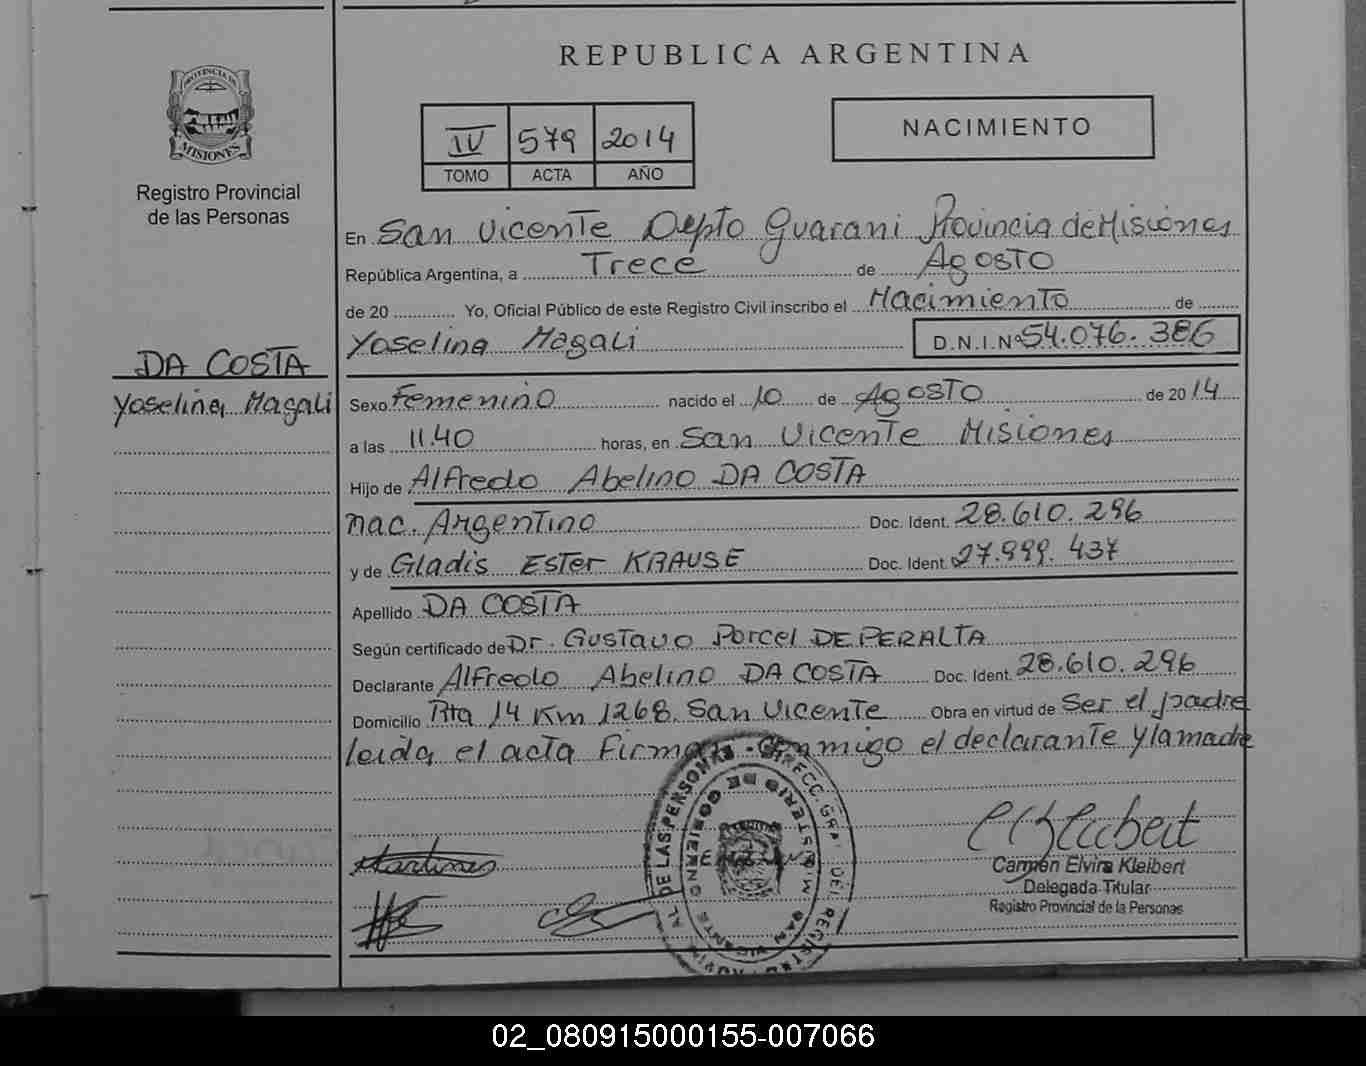 REPUBLICA ARGENTINA
PROVINCIA DE
MISIONES
Registro Provincial
de las Personas
IV 579 2014
TOMO ACTA AÑO
NACIMIENTO
En San Vicente Depto Guarani Provincia de Misiones
República Argentina, a Trece de Agosto
de 20 Yo, Oficial Público de este Registro Civil inscribo el Nacimiento de
Yoselina Magali D.N.I.Nº 54.076.386
DA COSTA
Yoselina Magali
Sexo Femenino nacido el 10 de Agosto de 2014
a las 11.40 horas, en San Vicente Misiones
Hijo de Alfredo Abelino DA COSTA
nac. Argentino Doc. Ident. 28.610.296
y de Gladis Ester KRAUSE Doc. Ident. 27.999.437
Apellido DA COSTA
Según certificado de Dr. Gustavo Porcel DE PERALTA
Declarante Alfredo Abelino DA COSTA Doc. Ident. 28.610.296
Domicilio Rta 14 Km 1268. San Vicente Obra en virtud de Ser el padre
leida el acta Firman conmigo el declarante y la madre
DIRECC. GRAL DEL REGISTRO PROVINCIAL DE LAS PERSONAS
MINISTERIO DE GOBIERNO
SAN VICENTE
Martines
Carmen Elvira Kleibert
Delegada Titular
Registro Provincial de la Personas
02_080915000155-007066